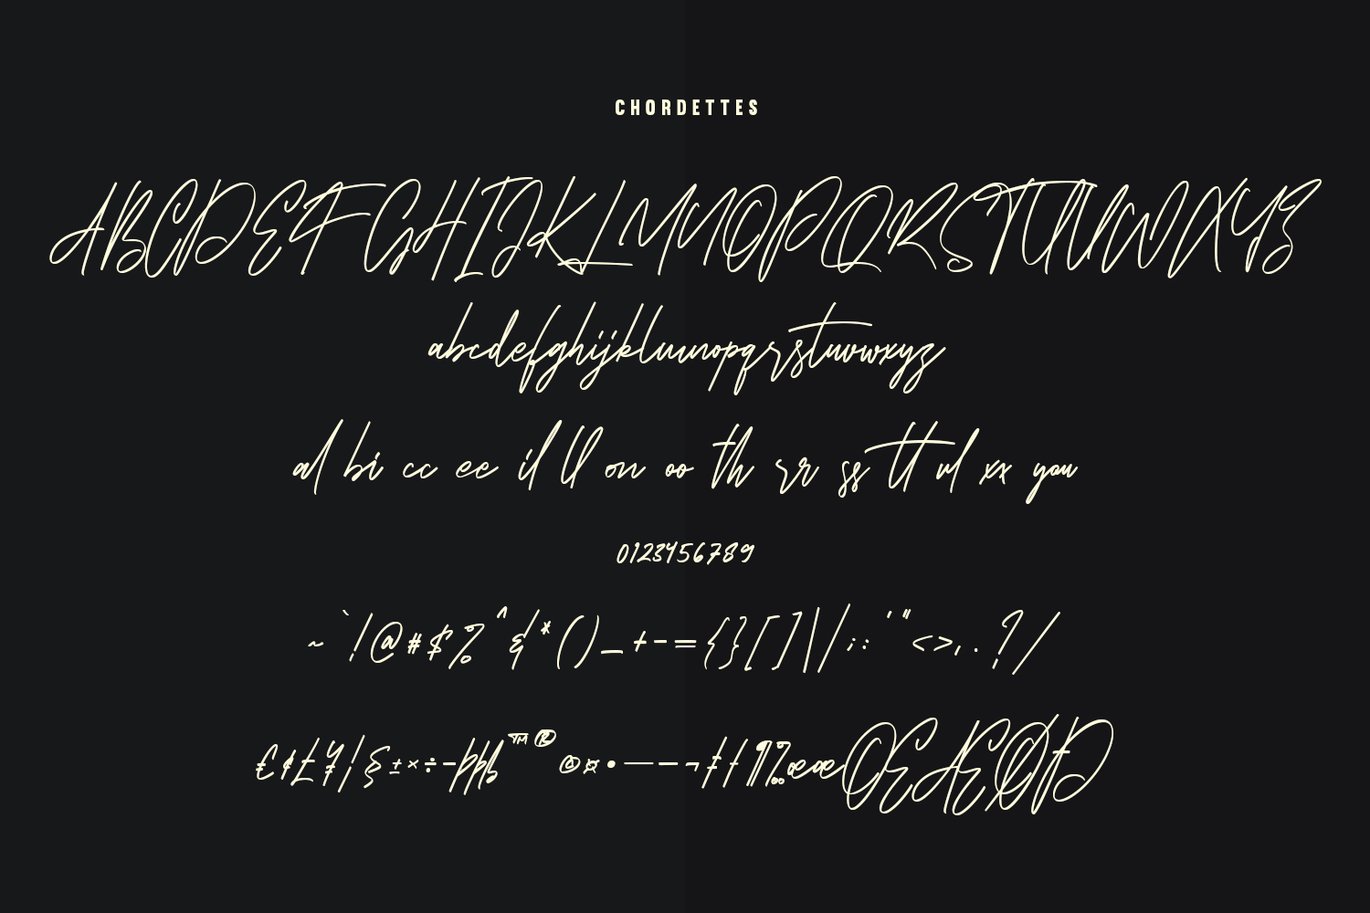 CHORDETTES
ABCDEFGHIJKLMNOPQRSTUVWXYZ
abcdefghijklmnopqrstuvwxyz
al bi cc ee il ll on oo th rr ss tt ul xx you
0123456789
~`!@#$%^&*()_+-={}[]\|/;:'"<>,.?/
€¢£¥¦§±×÷-þþß™®©¤•—–¬‡†¶‰œæŒÆØÐ